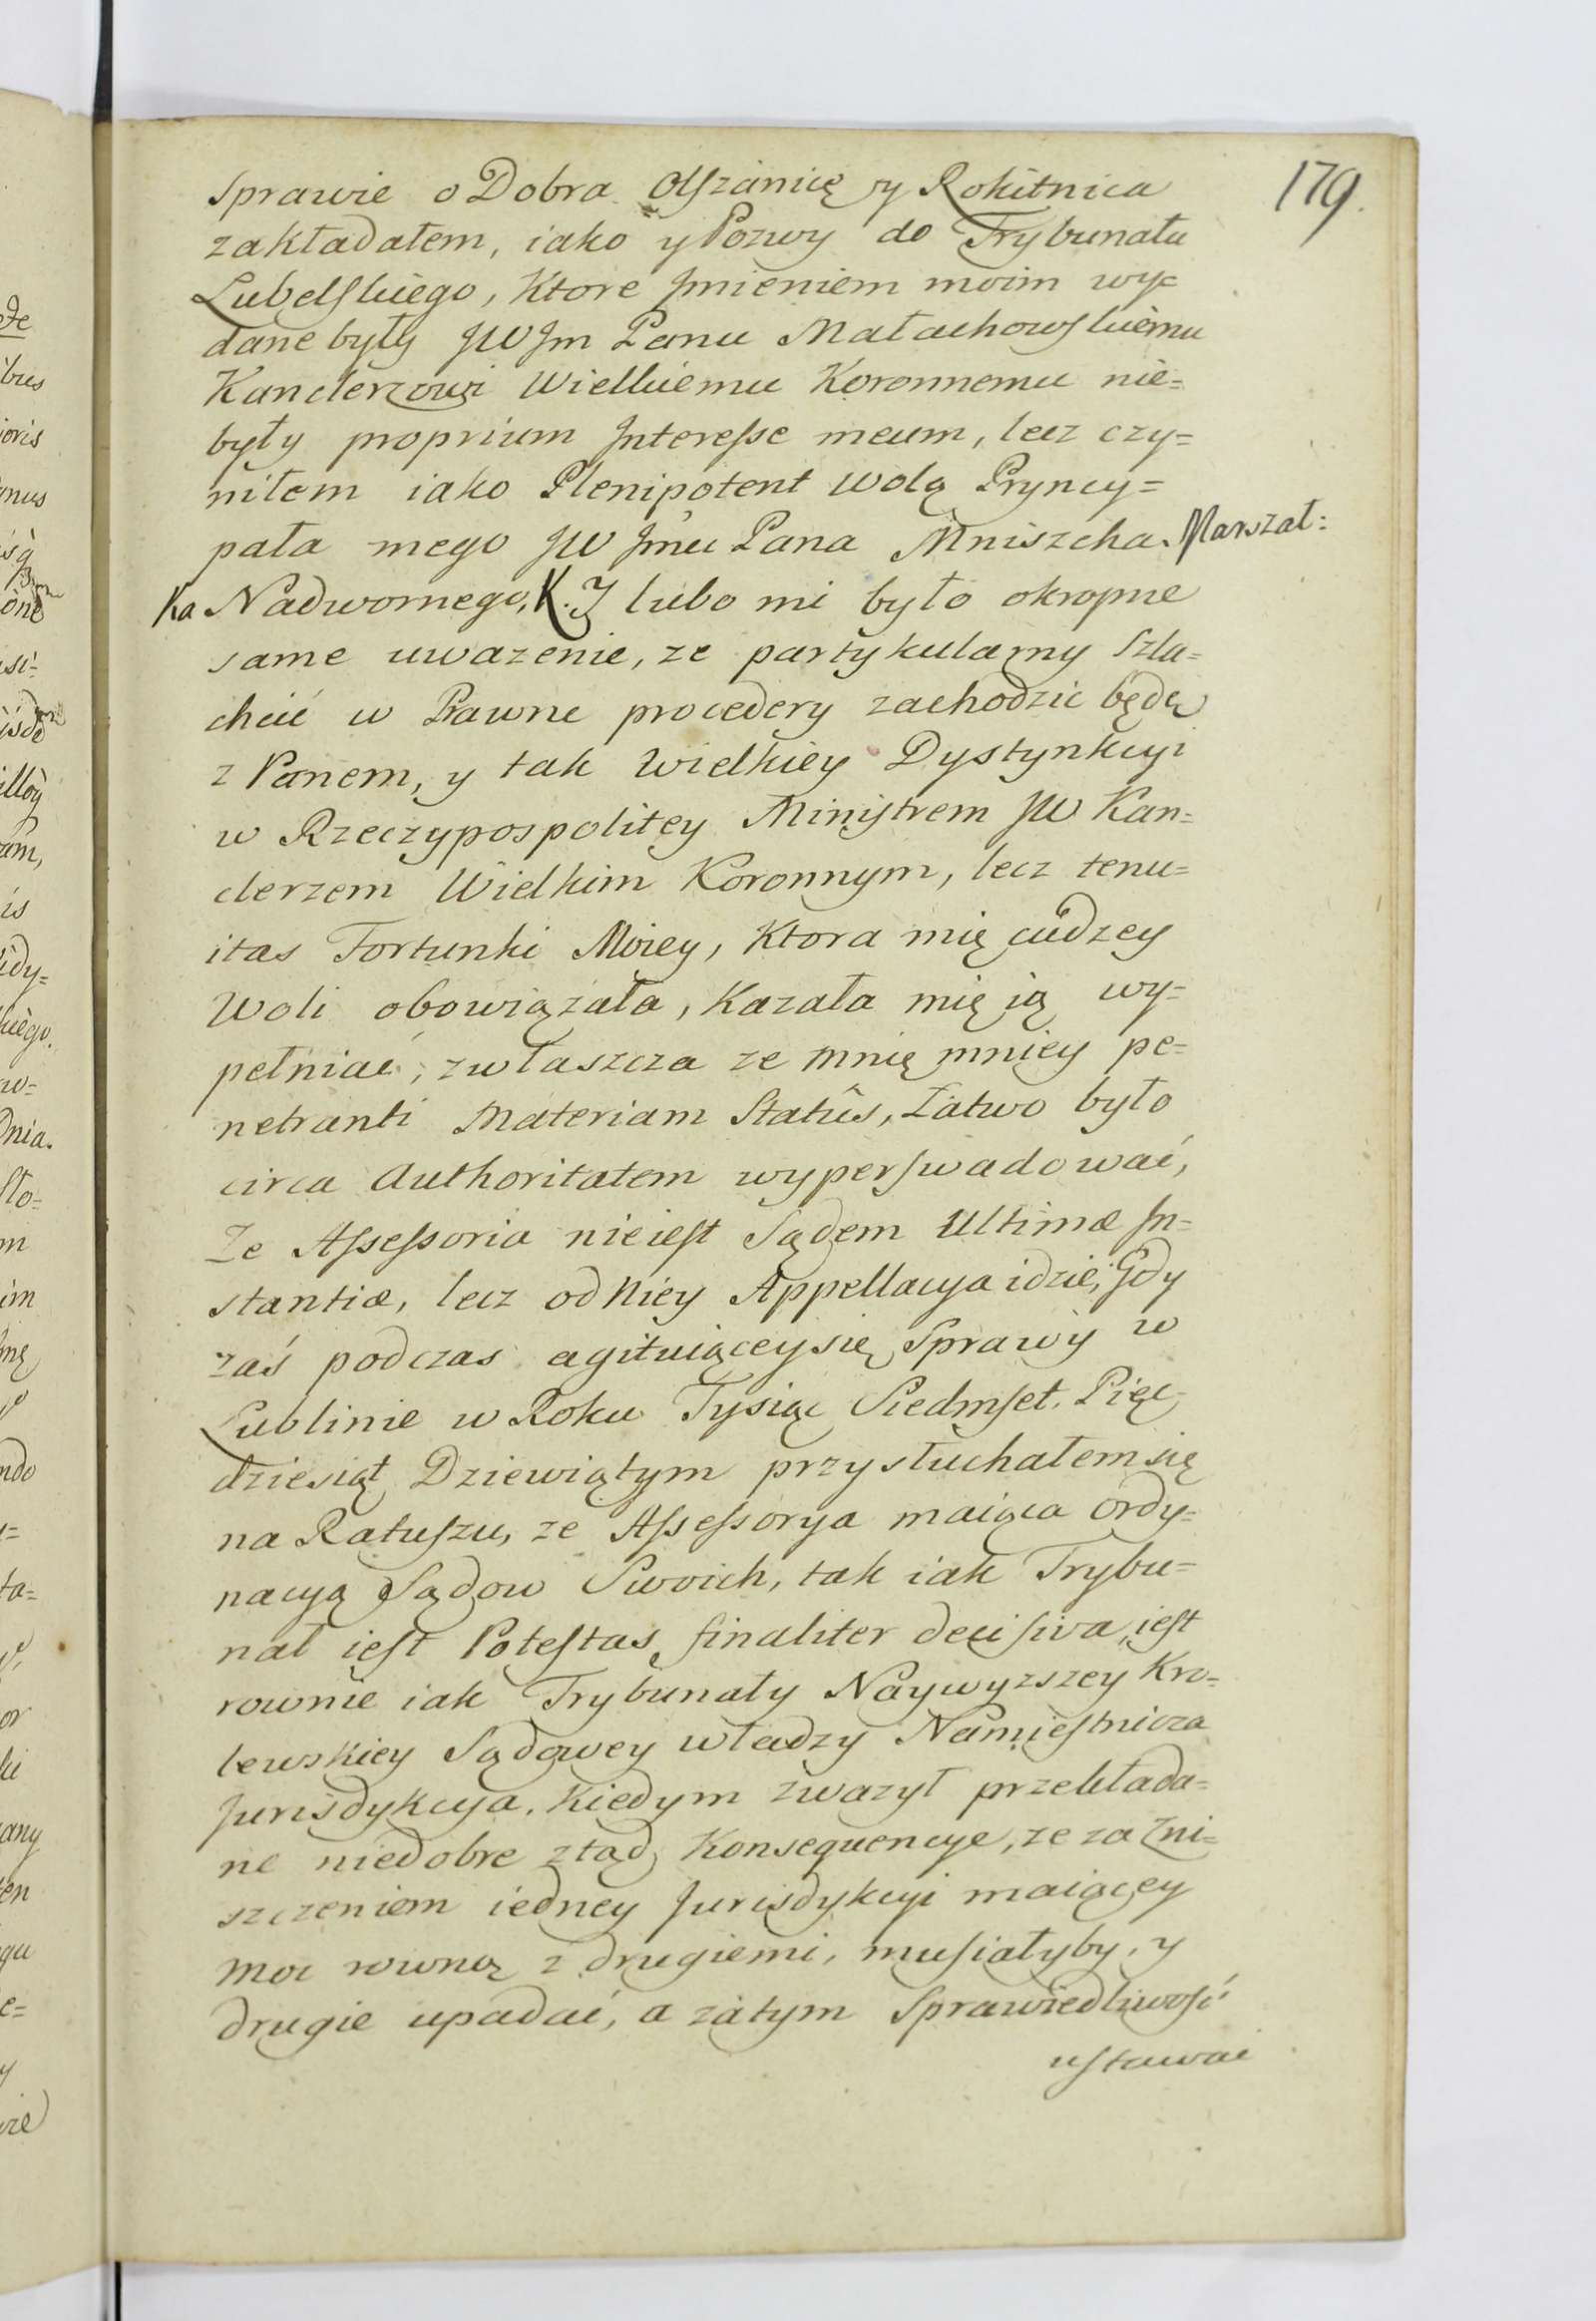 179.
sprawie o Dobra Olszanicę y Rokitnica
zakładałem, iako y Pozwy do Trybunału
Lubelskiego, Ktore Jmieniem moim wy=
dane były JW Jm Panu Małachowskiemu
Kanclerzowi Wielkiemu Koronnemu nie=
były proprium Interesse meum, lecz czy=
niłem iako Plenipotent wolą Pryncy=
pała mego JW Jmci Pana Mniszcha Marszał:
ka Nadwornego, K. I lubo mi było okropne
same uwazenie, ze partykularny Szla=
chcić w Prawne procedery zachodzic będę
z Panem, y tak Wielkiey Dystynkcyi
w Rzeczypospolitey Ministrem JW Kan=
clerzem Wielkim Koronnym, lecz tenu=
itas Fortunki Moiey, Ktora mię cudzey
Woli obowiązała, Kazała mię ią wy=
pełniać, zwłaszcza ze mnię mniey pe=
netranti Materiam Statûs, Łatwo było
circa Authoritatem wyperswadować,
Ze Assessoria nieiest Sądem Ultimæ In=
stantiæ, lecz od Niey Appellacya idzie, Gdy
zaś podczas agituiącey się Sprawy w
Lublinie w Roku Tysiąc Siedmset Pięć
dziesiąt Dziewiątym przysłuchałem się
na Ratuszu, ze Assessorya maiąca Ordy=
nacyą Sądow Swoich, tak iak Trybu=
nał iest Potestas finaliter decisiva, iest
rownie iak Trybunały Naywyzszey Kro=
lewskiey Sądowey władzy Namiestnicza
Jurisdykcya. Kiedym zwazył przekłada=
ne niedobre ztąd Konsequencye, ze za Zni=
szczeniem iedney Jurisdykcyi maiącey
moc rowną z drugiemi, musiałyby, y
drugie upadać, a zatym Sprawiedliwość
ustawać